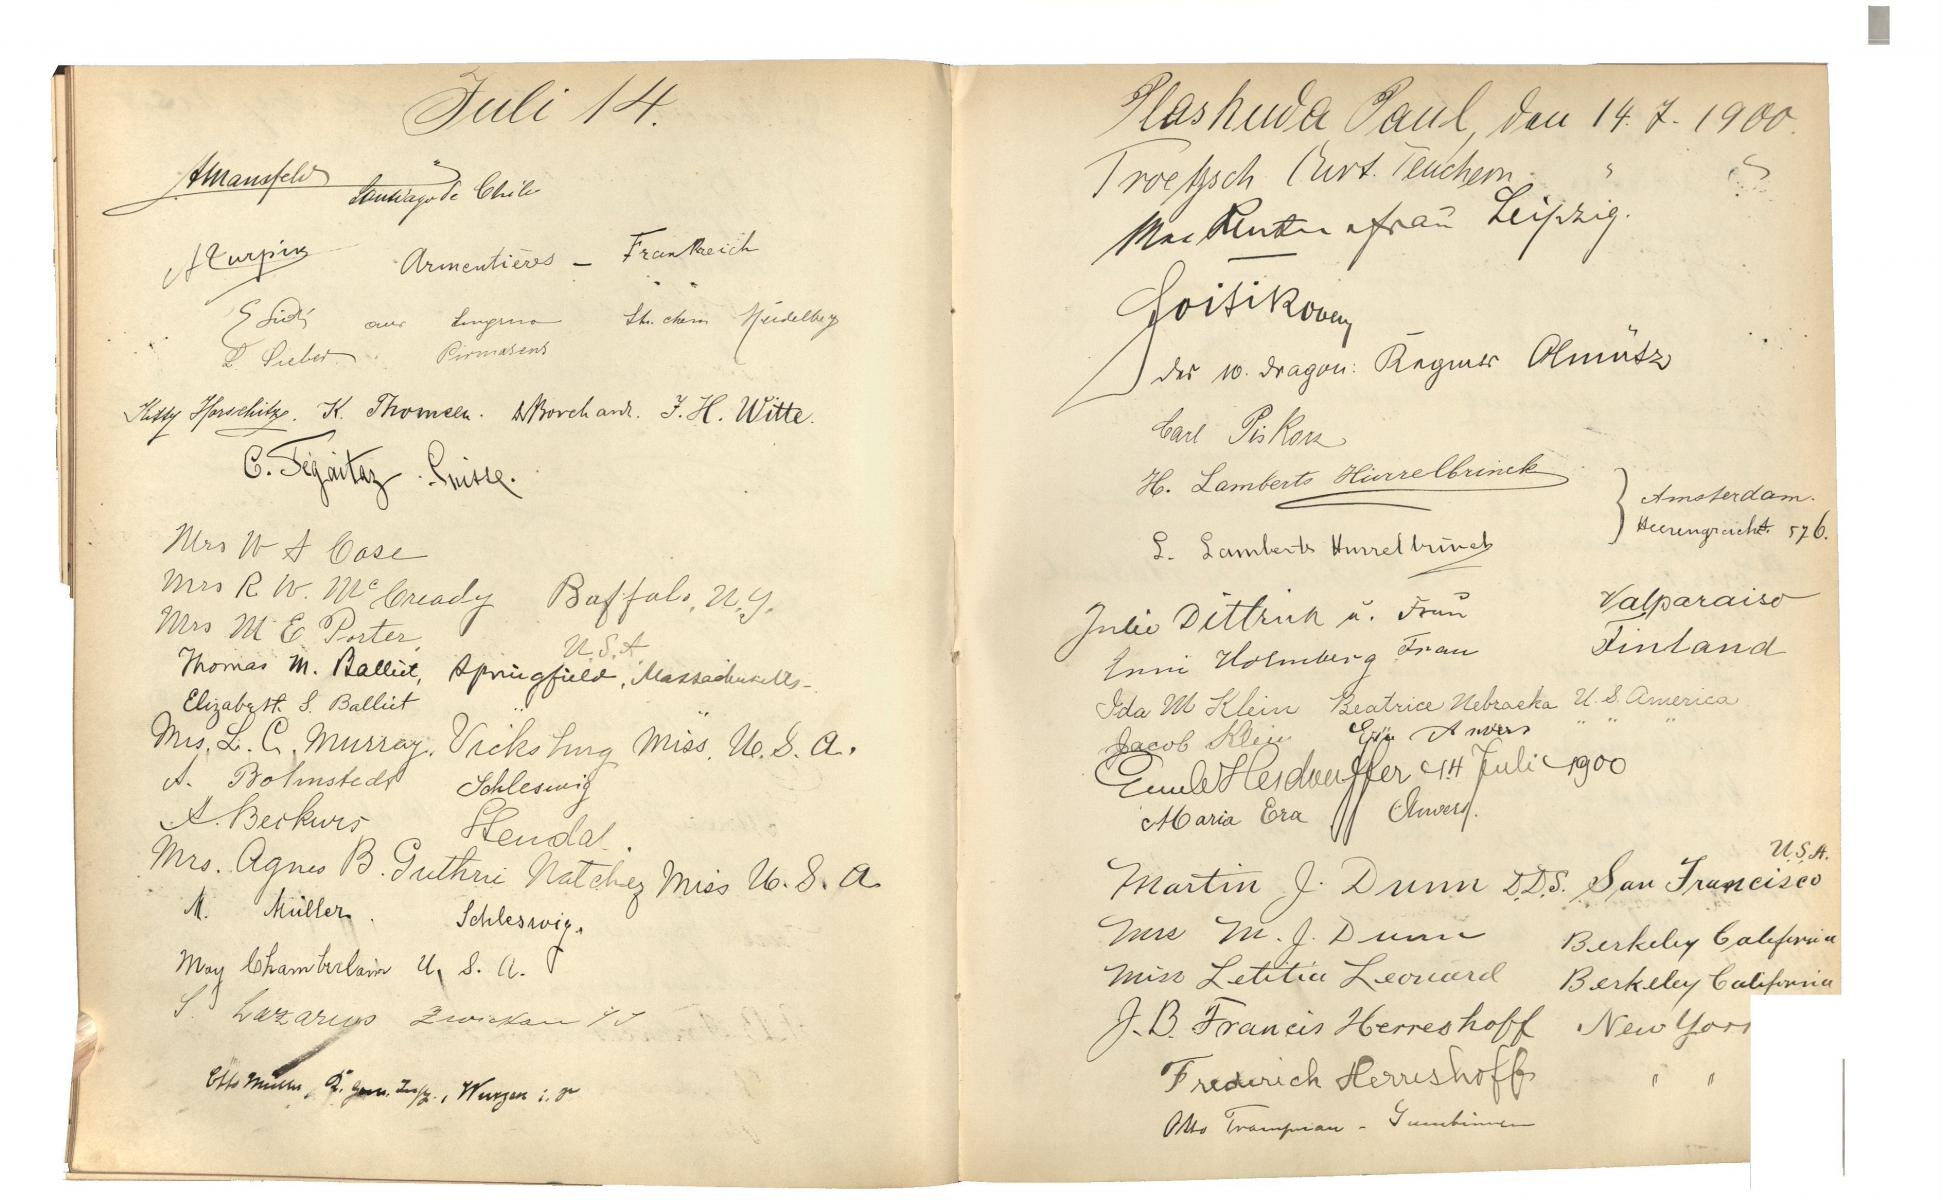 Juli 14.
AMansfeld
Santiago de Chile
A Turpin Armentières – Frankreich
aus Heidelberg
L. Sieber Pirmasens
K. Thomsen. Borchardt. F. H. Witte.
C. Suisse.
Mrs W A Case
Mrs R W. McCready Buffalo, N.Y.
Mrs M E Porter, U.S.A
Thomas M. Balliet, Springfield, Massachusetts
Elizabeth S. Balliet "
Mrs. L. C. Murray. Vicksburg Miss. U. S. A.
A. Bolmstedt Schleswig
A. Beckurs Stendal.
Mrs. Agnes B. Guthrie Natchez Miss U. S. A
M. Müller. Schleswig.
May Chamberlain U. S. A.
S. Lazarus Zwickau
Otto Müller, Wurzen
Plashuda Paul, den 14. 7. 1900.
Troetzsch Curt. Teuchern. "
Frau Leipzig.
des 10. Dragon: Olmütz
Carl Piskorz
H. Lamberts Hurrelbrinck
Amsterdam.
Heerengracht 576.
L. Lamberts Hurrelbrinck
Julio Dittrich u. Frau Valparaiso
Holmberg Frau Finland
Ida M Klein Beatrice Nebraska U. S. America
Jacob Klein " " "
14 Juli 1900
Maria Era Anvers.
U.S.A.
Martin J. Dunn D.D.S. San Francisco
Mrs M. J. Dunn Berkeley California
Miss Letitia Leonard Berkeley California
J. B. Francis Herreshoff New York
Frederick Herreshoff " "
Otto Trampnau - Gumbinnen